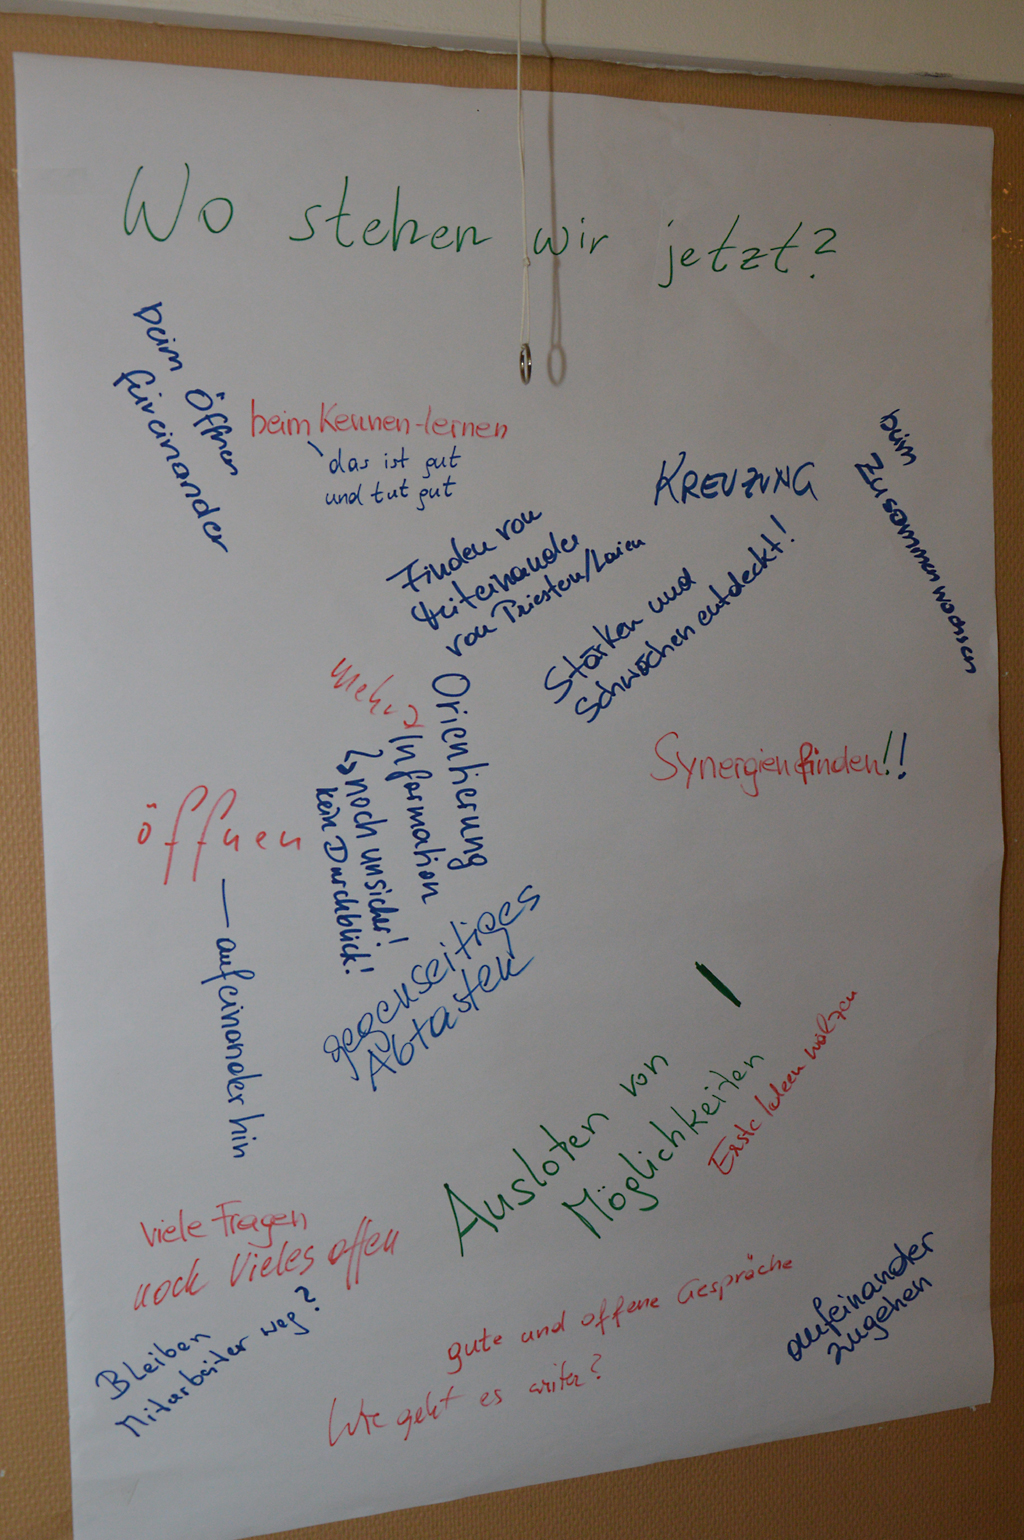 Wo stehen wir jetzt?
beim Öffnen
füreinander
beim Kennen-lernen
das ist gut
und tut gut
KREUZUNG
beim
Zusammenwachsen
Finden von
Miteinander
von Priestern/Laien
Stärken und
Schwächen entdeckt!
Mehr
Orientierung
Information
noch unsicher!
kein Durchblick!
Synergien finden!!
öffnen
— aufeinander hin
gegenseitiges
Abtasten
Ausloten von
Möglichkeiten
Erste Ideen wälzen
viele Fragen
noch Vieles offen
Bleiben
Mitarbeiter weg?
gute und offene Gespräche
Wie geht es weiter?
aufeinander
zugehen